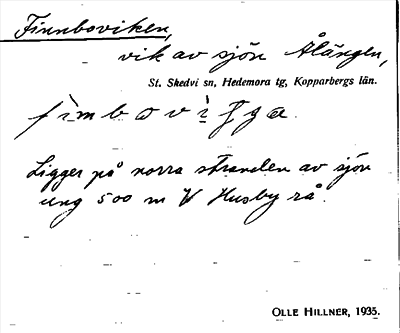 Finnboviken,
vik av sjön Ålängen,
St. Skedvi sn, Hedemora tg, Kopparbergs län.
Ligger på norra stranden av sjön
ung 500 m V Husby rå.
OLLE HILLNER, 1935.